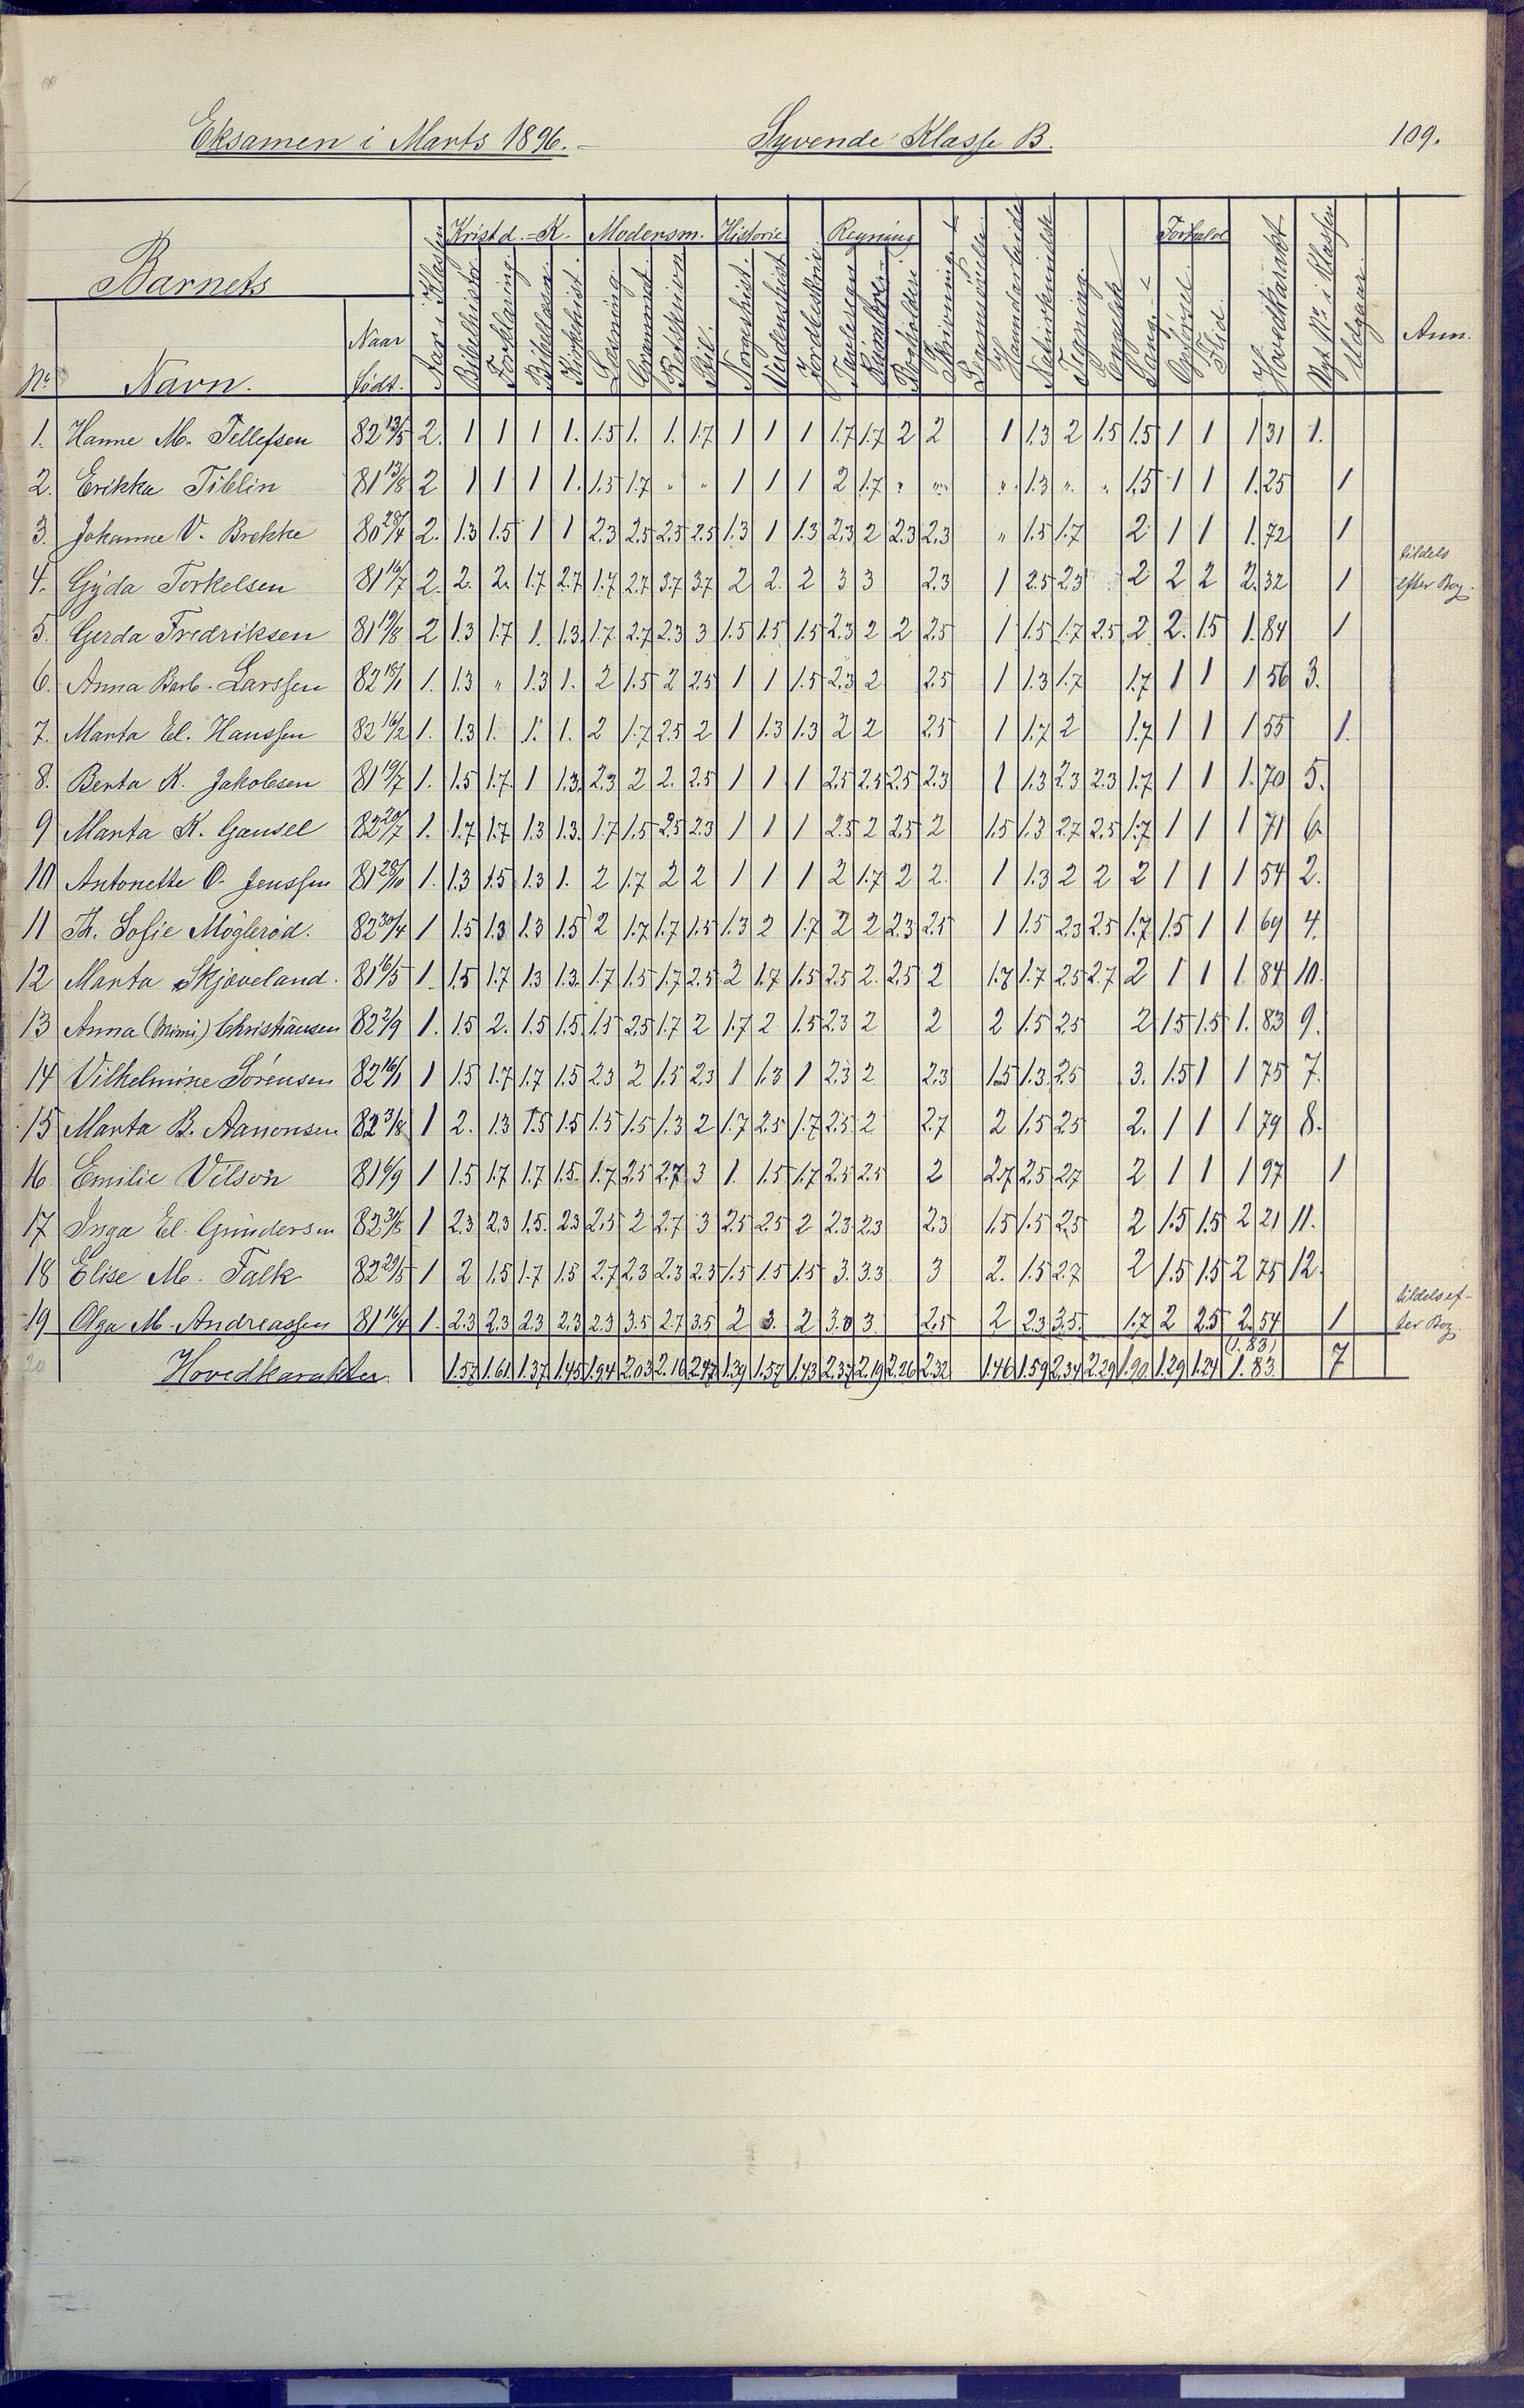 Eksamen i Marts 1896. Syvende Klasse B. 109.
Barnets Kristd.=K. Modersm. Historie Regning Forhold
No Navn. Naar født. Aar i Klassen Bibelhistor. Forklaring Bibellæsn. Kirkehist. Læsning. Grammat. Retskrivn. Stil. Norgeshist. Verdenshist. Jordbeskriv. Tavleregn. Bogholderi Skrivning Legemsøvelse Haandarbeide Naturkundsk. Tegning Engelsk Sang Opførsel Flid Hovedkarakt. Nyt No. i Klassen Udgaar Anm.
1. Hanne M. Tellefsen 82 12/5 2. 1 1 1 1. 1.5 1. 1. 1.7 1 1 1 1.7 1.7 2 2 1 1.3 2 1.5 1.5 1 1 1 31 1.
2. Erikka Tiblin 81 13/8 2 1 1 1 1. 1.5 1.7 " " 1 1 1 2 1.7 " " " 1.3 " " 1.5 1 1 1.25 1
3. Johanne V. Brekke 80 28/4 2. 1.3 1.5 1 1 2.3 2.5 2.5 2.5 1.3 1 1.3 2.3 2 2.3 2.3 " 1.5 1.7 2 1 1 1.72 1
4. Gyda Torkelsen 81 16/7 2. 2. 2. 1.7 2.7 1.7 2.7 3.7 3.7 2 2. 2 3 3 2.3 1 2.5 2.3 2 2 2 2.32 1 tildels efter Bog.
5. Gerda Fredriksen 81 19/8 2 1.3 1.7 1. 1.3. 1.7 2.7 2.3 3 1.5 1.5 1.5 2.3 2 2 2.5 1 1.5 1.7 2.5 2 2. 1.5 1.84 1
6. Anna Barb. Larssen 82 18/1 1. 1.3 " 1.3 1. 2 1.5 2 2.5 1 1 1.5 2.3 2 2.5 1 1.3 1.7 1.7 1 1 1 56 3.
7. Marta El. Hanssen 82 16/2 1. 1.3 1. 1. 1. 2 1.7 2.5 2 1 1.3 1.3 2 2 2.5 1 1.7 2 1.7 1 1 1 55 1.
8. Berta K. Jakobsen 81 19/7 1. 1.5 1.7. 1 1.3. 2.3 2 2. 2.5 1 1 1 2.5 2.5 2.5 2.3 1 1.3 2.3 2.3 1.7 1 1 1.70 5.
9 Marta K. Gausel 82 20/7 1. 1.7 1.7 1.3 1.3. 1.7 1.5 2.5 2.3 1 1 1 2.5 2 2.5 2 1.5 1.3 2.7 2.5 1.7 1 1 1 71 6.
10 Antonette O. Jenssen 81 28/10 1. 1.3 1.5 1.3 1. 2 1.7 2 2 1 1 1 2 1.7 2 2. 1 1.3 2 2 2 1 1 1 54 2.
11 Th. Sofie Møglerød. 82 30/4 1 1.5 1.3 1.3 1.5 2 1.7 1.7 1.5 1.3 2 1.7 2 2 2.3 2.5 1 1.5 2.3 2.5 1.7 1.5 1 1 69 4.
12 Marta Skjæveland. 81 16/5 1. 1.5 1.7 1.3 1.3. 1.7 1.5 1.7 2.5 2 1.7 1.5 2.5 2. 2.5 2 1.7 1.7 2.5 2.7 2 1 1 1 84 10.
13 Anna (Mimi) Christiansen 82 2/9 1. 1.5 2. 1.5 1.5 1.5 2.5 1.7 2 1.7 2 1.5 2.3 2 2 2 1.5 2.5 2 1.5 1.5 1. 83 9.
14 Vilhelmine Sørensen 82 16/1 1 1.5 1.7 1.7 1.5 2.3 2 1.5 2.3 1 1.3 1 2.3 2 2.3 1.5 1.3 2.5 3. 1.5 1 1 75 7.
15 Marta B. Aanonsen 82 3/8 1 2. 1.3 1.5 1.5 1.5 1.5 1.3 2 1.7 2.5 1.7 2.5 2 2.7 2 1.5 2.5 2. 1 1 1 79 8.
16 Emilie Vilson 81 6/9 1 1.5 1.7 1.7 1.5. 1.7 2.5 2.7 3 1. 1.5 1.7 2.5 2.5 2 2.7 2.5 2.7 2 1 1 1 97 1
17 Inga El. Gundersen 82 31/8 1 2.3 2.3 1.5. 2.3 2.5 2 2.7 3 2.5 2.5 2 2.3 2.3 2.3 1.5 1.5 2.5 2 1.5 1.5 2 21 11.
18 Elise M. Falk 82 29/5 1 2 1.5 1.7 1.5 2.7 2.3 2.3 2.5 1.5 1.5 1.5 3. 3.3 3 2. 1.5 2.7 2 1.5 1.5 2 75 12.
19 Olga M. Andreassen 81 16/4 1. 2.3 2.3 2.3 2.3 2.3 3.5 2.7 3.5 2 3. 2 3.0 3 2.5 2 2.3 3.5. 1.7 2 2.5 2.54 1 tildels ef-ter Bog.
20 Hovedkarakter. 1.57 1.61 1.37 1.45 1.94 2.03 2.16 2.47 1.39 1.57 1.43 2.37 2.19 2.26 2.32 1.46 1.59 2.34 2.29 1.90 1.29 1.24 (1.83) 1.83. 7